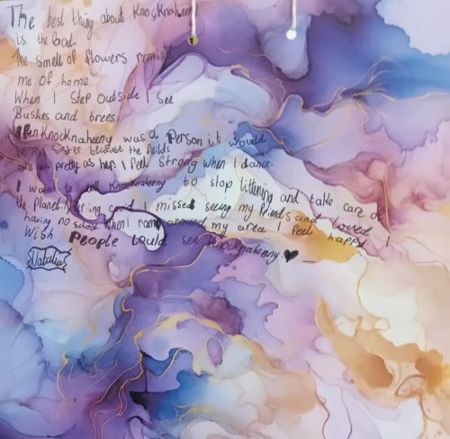 The best thing about Knocknaheeny
is the food.
The smell of flowers remind
me of home.
When I step outside I see
Bushes and trees.
If Knocknaheeny was a Person it would
be my sister because the fields
are as pretty as her. I feel Strong when I dance.
I want Knocknaheeny to stop littering and take care of
the Planet. I missed seeing my friends and loved
having no school when I roam around my area I feel happy. I
Wish People could see Knocknaheeny ♥
Natalia